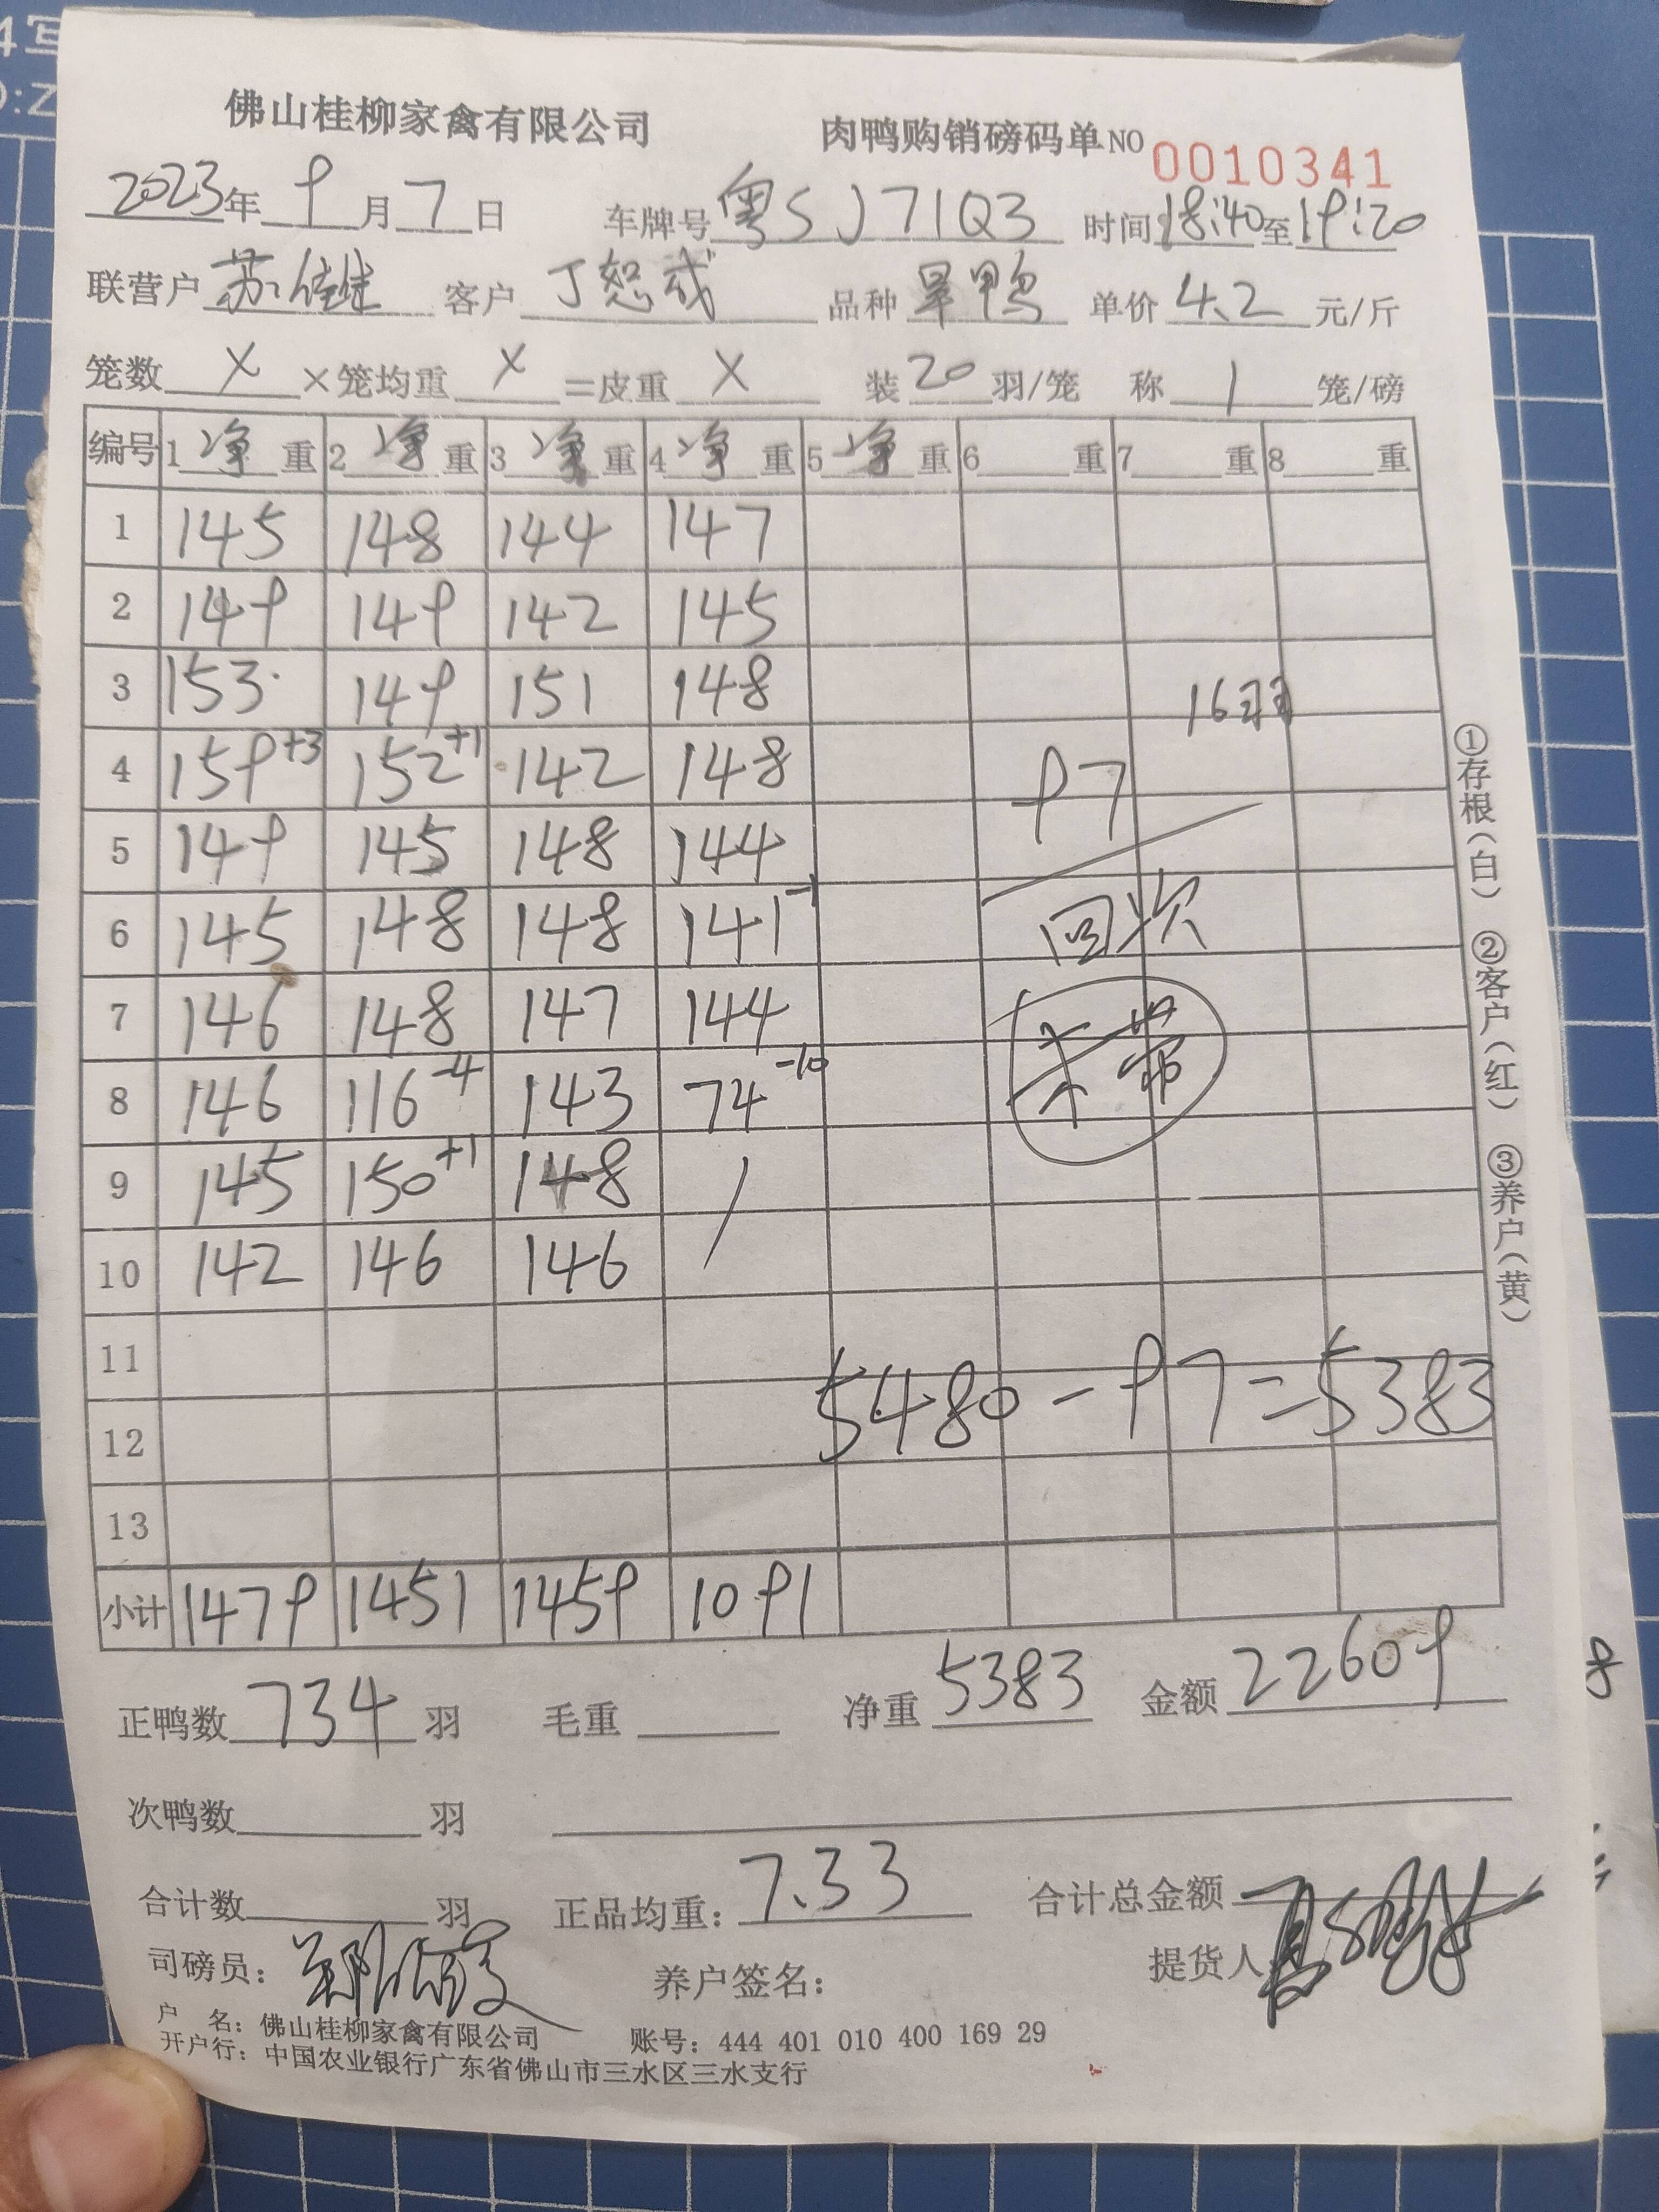 佛山桂柳家禽有限公司 肉鸭购销磅码单 NO 0010341
2023年 9月 7日 车牌号 粤SJ71Q3 时间 18:40 至 19:20
联营户 苏继 客户 丁恕成 品种 旱鸭 单价 4.2 元/斤
笼数 X ×笼均重 X =皮重 X 装 20 羽/笼 称 1 笼/磅
编号 1 净 重 2 净 重 3 净 重 4 净 重 5 净 重 6 重 7 重 8 重
1 145 148 144 147
2 149 149 142 145
3 153 149 151 148 16羽
4 159+3 152+1 142 148 97
5 149 145 148 144
6 145 148 148 141-1 回次
7 146 148 147 144 未带
8 146 116-4 143 74-10
9 145 150+1 148 /
10 142 146 146
11
5480-97=5383
12
13
小计 1479 1451 1459 1091
正鸭数 734 羽 毛重 净重 5383 金额 22609
次鸭数 羽
合计数 羽 正品均重: 7.33 合计总金额
司磅员: 养户签名: 提货人
户 名: 佛山桂柳家禽有限公司 账号: 444 401 010 400 169 29
开户行: 中国农业银行广东省佛山市三水区三水支行
①存根(白) ②客户(红) ③养户(黄)